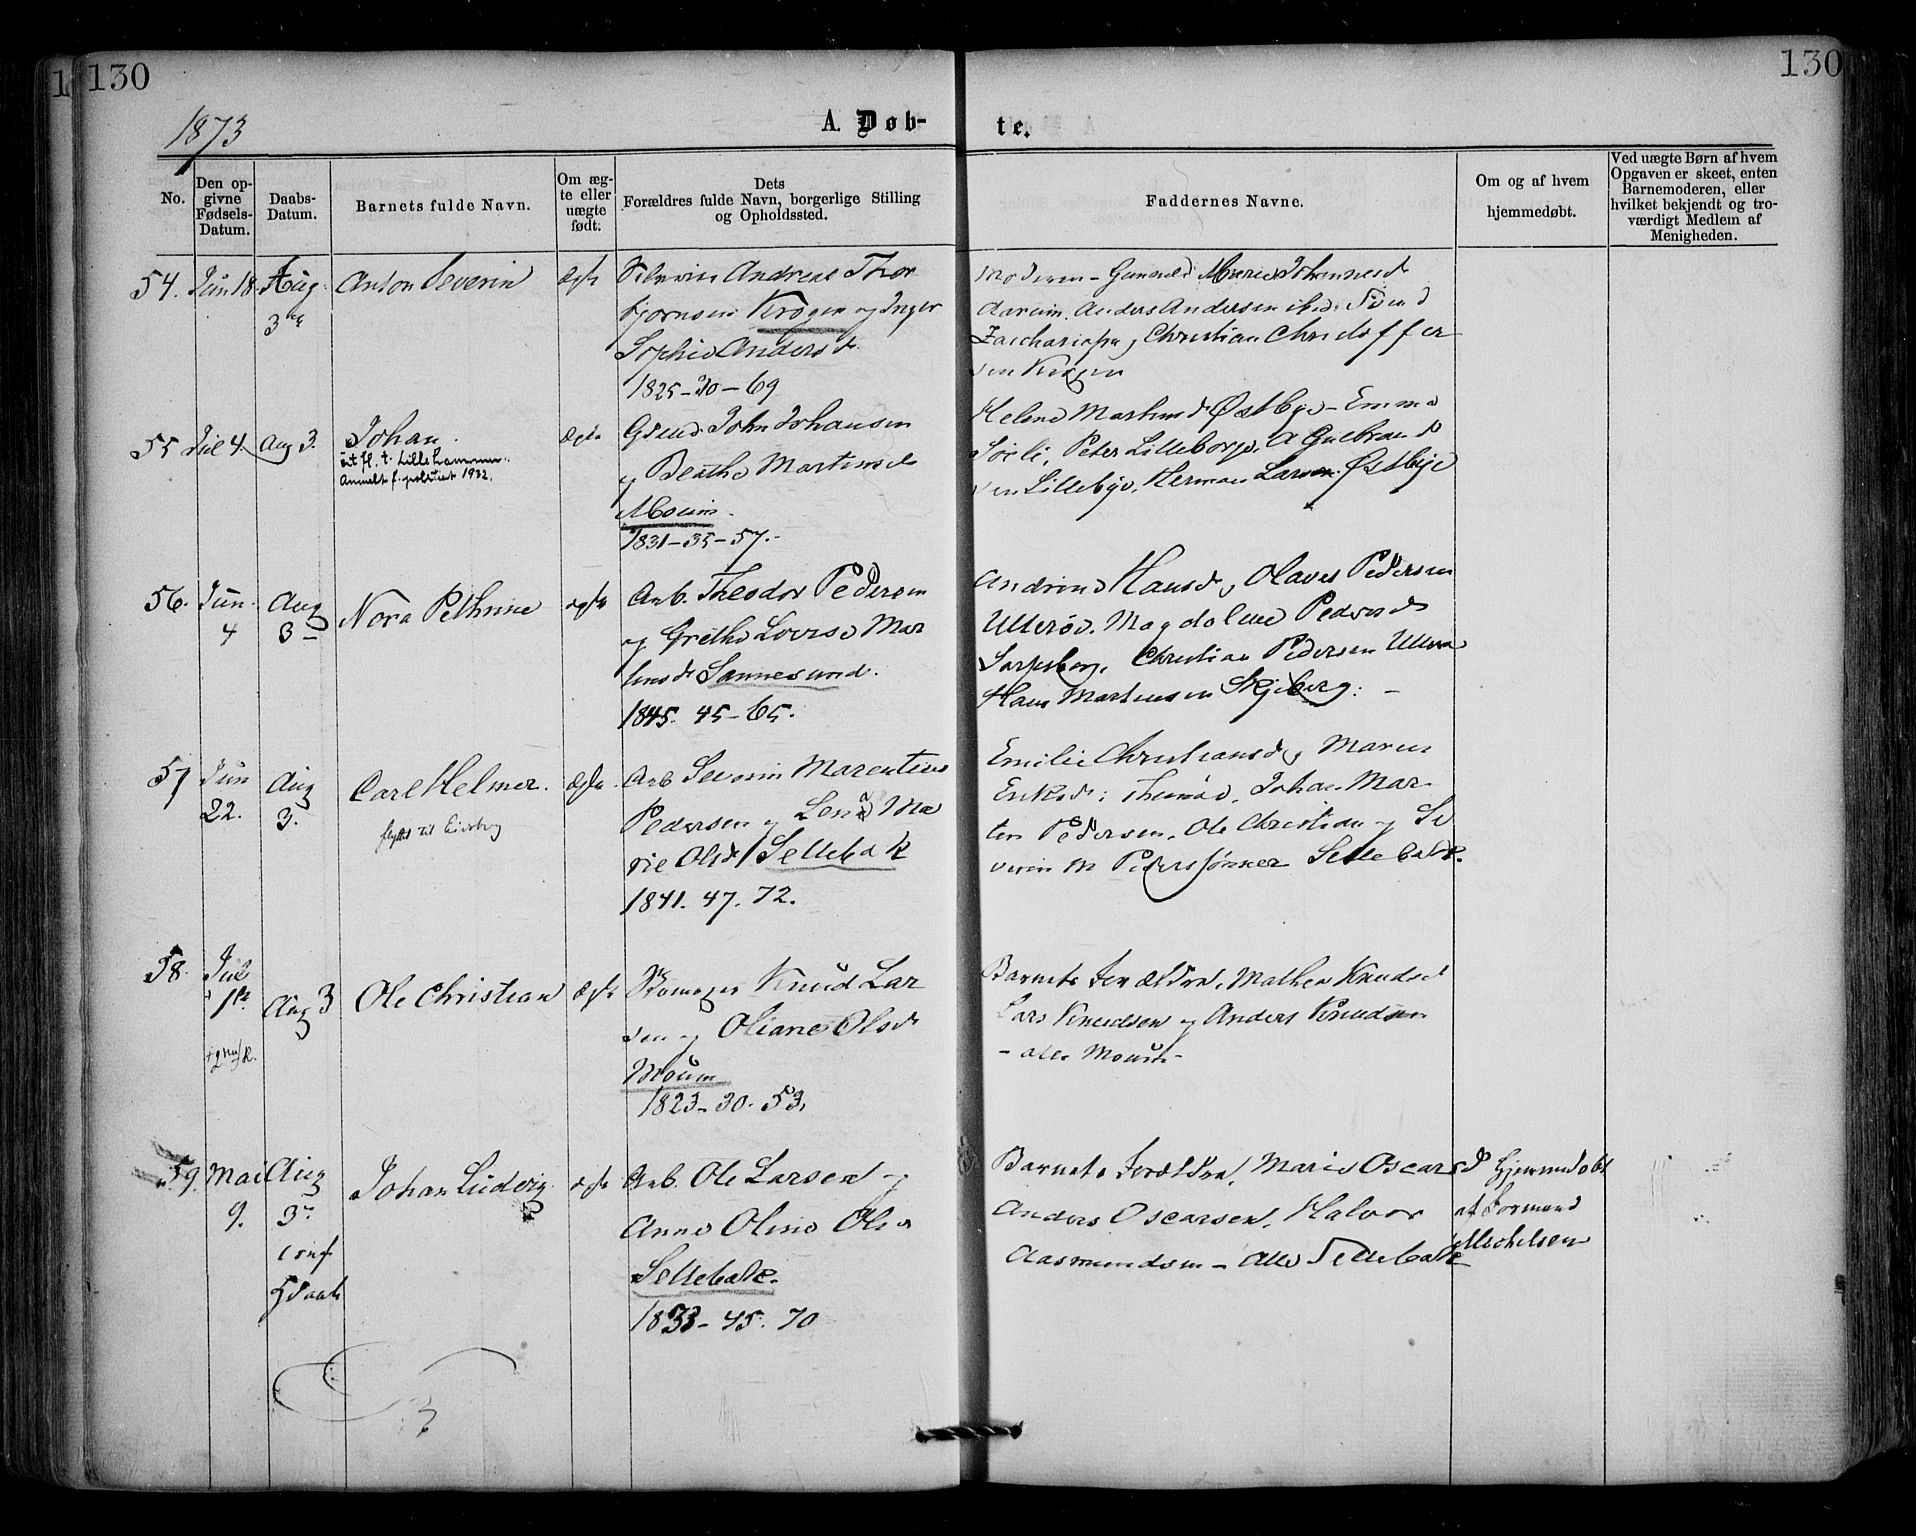 130
130
1873
A. Døb-
te.
No.
Den op-
givne
Fødsels-
Datum.
Daabs-
Datum.
Barnets fulde Navn.
Om æg-
te eller
uægte
født.
Dets
Forældres fulde Navn, borgerlige Stilling
og Opholdssted.
Faddernes Navne.
Om og af hvem
hjemmedøbt.
Ved uægte Børn af hvem
Opgaven er skeet, enten
Barnemoderen, eller
hvilket bekjendt og tro-
værdigt Medlem af
Menigheden.
54. Jun 18. Aug. Anton Severin ægte Andreas Thor
3
bjørnsen Krogen og Inger
Sophie Andersd.
1825-30-69
Moderen - Gunnild Marie Johannesd
Aarum. Anders Andersen
Zachariasen, Christian Christoffer
sen Krogen
55 Jul 4. Aug 3. Johan. ægte John Johansen
utfl. t. Lillehammer.
Anmeldt f. 1932.
og Beathe Martinsd
Moum.
1831-35-57.-
Helene Martinsd Østbye - Emma
Sørli, Peter Lilleborge. A Gulbrand
sen Lillebye, Herman Larsen Østbye
56. Jun Aug Nora Pethrine ægte Arb. Theodor Pedersen
4 3
og Grethe Lovise Mar
tinsd Sannesund.
1845. 45-65.
Andrine Hansd, Olaves Pedersen
Ullerød. Magdalene Pedersd
Sarpsborg, Christian Pedersen Ullerø
Hans Martinsen Skjeberg. -
57 Jun Aug Carl Helmer. ægte Arb Severin Marentius
22. 3.
flyttet til Eidsberg
Pedersen og Lena Ma
rie Olsd Sellebak
1841. 47. 72.
Emilie Christiansd, Maren
Eriksd, Johan Mar
tin Pedersen, Ole Christian og Se
verin M Pederssønner Sellebakk.
58. Jul Aug 3 Ole Christian ægte Knud Lar
1ste
sen og Oliane Olsd
Moum
1823-30. 53.
Barnets Forældre, Mathea Knudsd
Lars Knudsen og Anders Knudsen
- alle Moum -
59. Mai Aug Johan Ludvig ægte Arb. Ole Larsen og
9. 3
conf
Daab
Anne Oline Olsd
Sellebakk.
1833-45. 70
Barnets Forældre, Marie Oscarsd
Anders Oscarsen, Halvor
Aasmundsen - Alle Sellebakk
Hjemmedøbt
af Formand
Michelsen